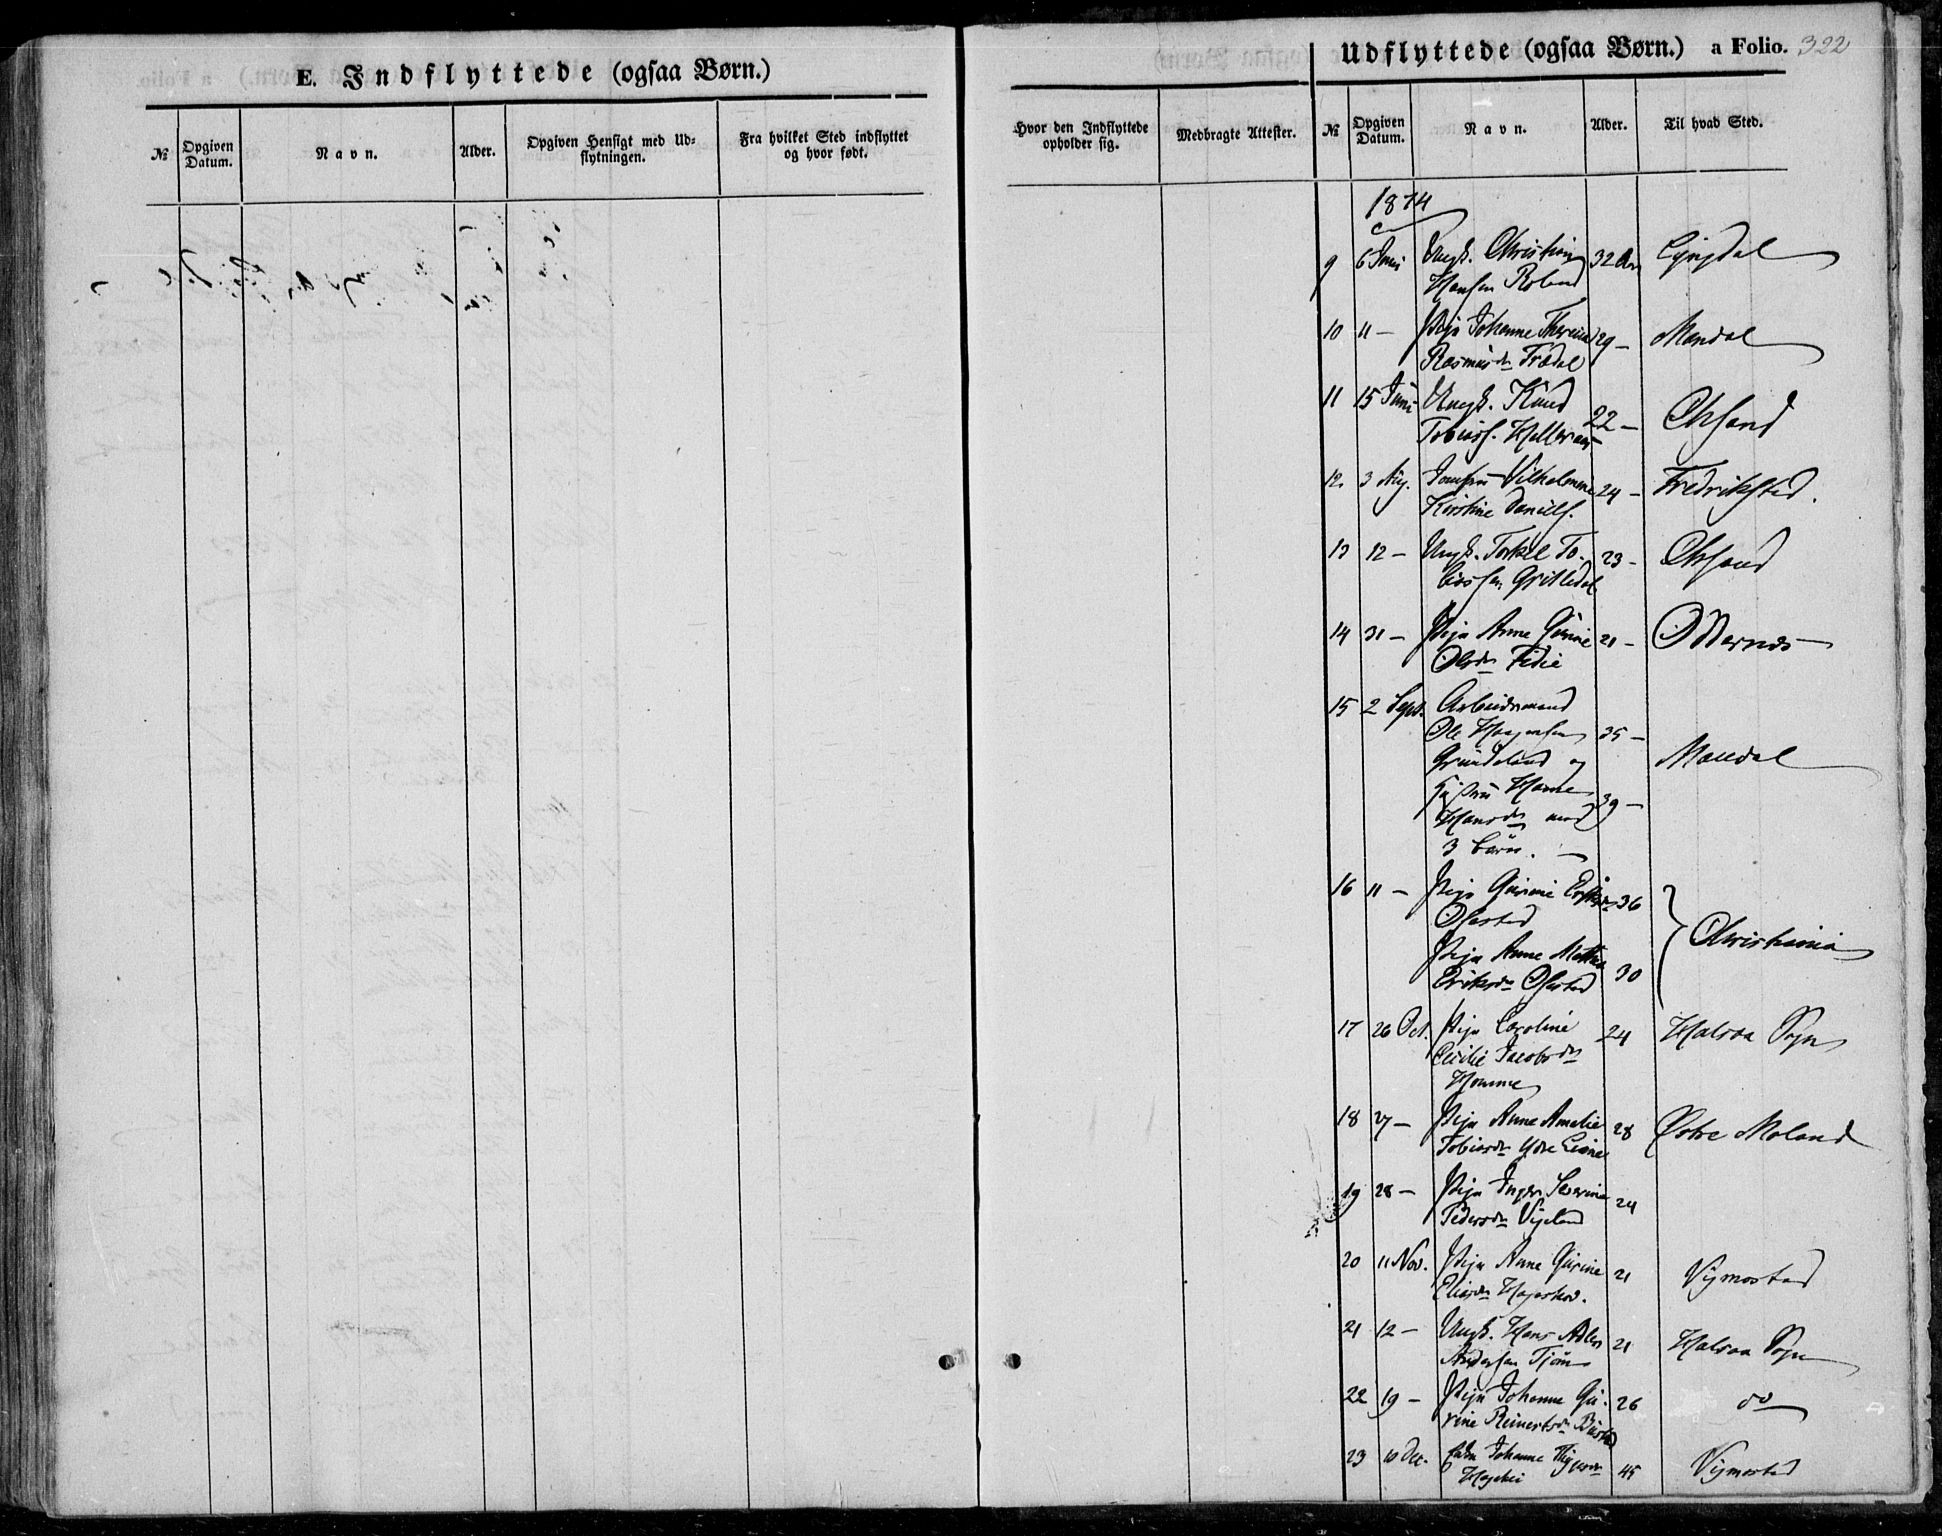 E. Indflyttede (ogsaa Børn.)
№
Opgiven Datum.
Navn.
Alder.
Opgiven Hensigt med Ud-
flytningen.
Fra hvilket Sted indflyttet
og hvor født.
Udflyttede (ogsaa Børn.) a Folio. 322
Hvor den Indflyttede
opholder sig.
Medbragte Attester.
№
Opgiven Datum.
Navn.
Alder.
Til hvad Sted.
1874
9 6 Juni Ungk. Christian 32 Aar Lyngdal
Hansen Roland
10 11 – Pige Johanne Theresia 29 – Mandal
Rasmusdr Trædal
11 15 Juni Ungk. Knud 22 – Chrsand
Tobiass.
12 3 Aug. Jomfru Vilhelmine 24 – Fredrikstad.
Kirstine Daniels.
13 12 – Ungk. Torkel To- 23 – Chrsand
biassen
14 31 – Pige Anne Gurine 21 – Oddernes
Olsdr Fidie
15 2 Sept. Arbeidsmand
Ole Haagensen 35 – Mandal
Grundeland og
Hustru Hanne 39 –
Hansdr med
3 Børn. –
16 11 – Pige Gurine Eriksdr 36
Ofestad
Christiania
Pige Anne Mathea 30
Eriksdr Ofestad
17 26 Oct. Pige Caroline 24 Halsaa Sogn
Cecilie Jacobsdr
Homme
18 27 – Pige Anne Amalie 28 Østre Moland
Tobiasdr Ydre Lianе
19 28 – Pige Inger Severine 24
Pedersdr Vigeland
20 11 Nov. Pige Anne Gurine 21 Vigmostad
Eliasdr
21 12 – Ungk. Hans Adler 21 Halsaa Sogn
Andersen Tjøm
22 19 – Pige Johanne Gu- 26 do
rine Reinertsdr Buestad
23 10 Dec. Johanne 45 Vigmostad